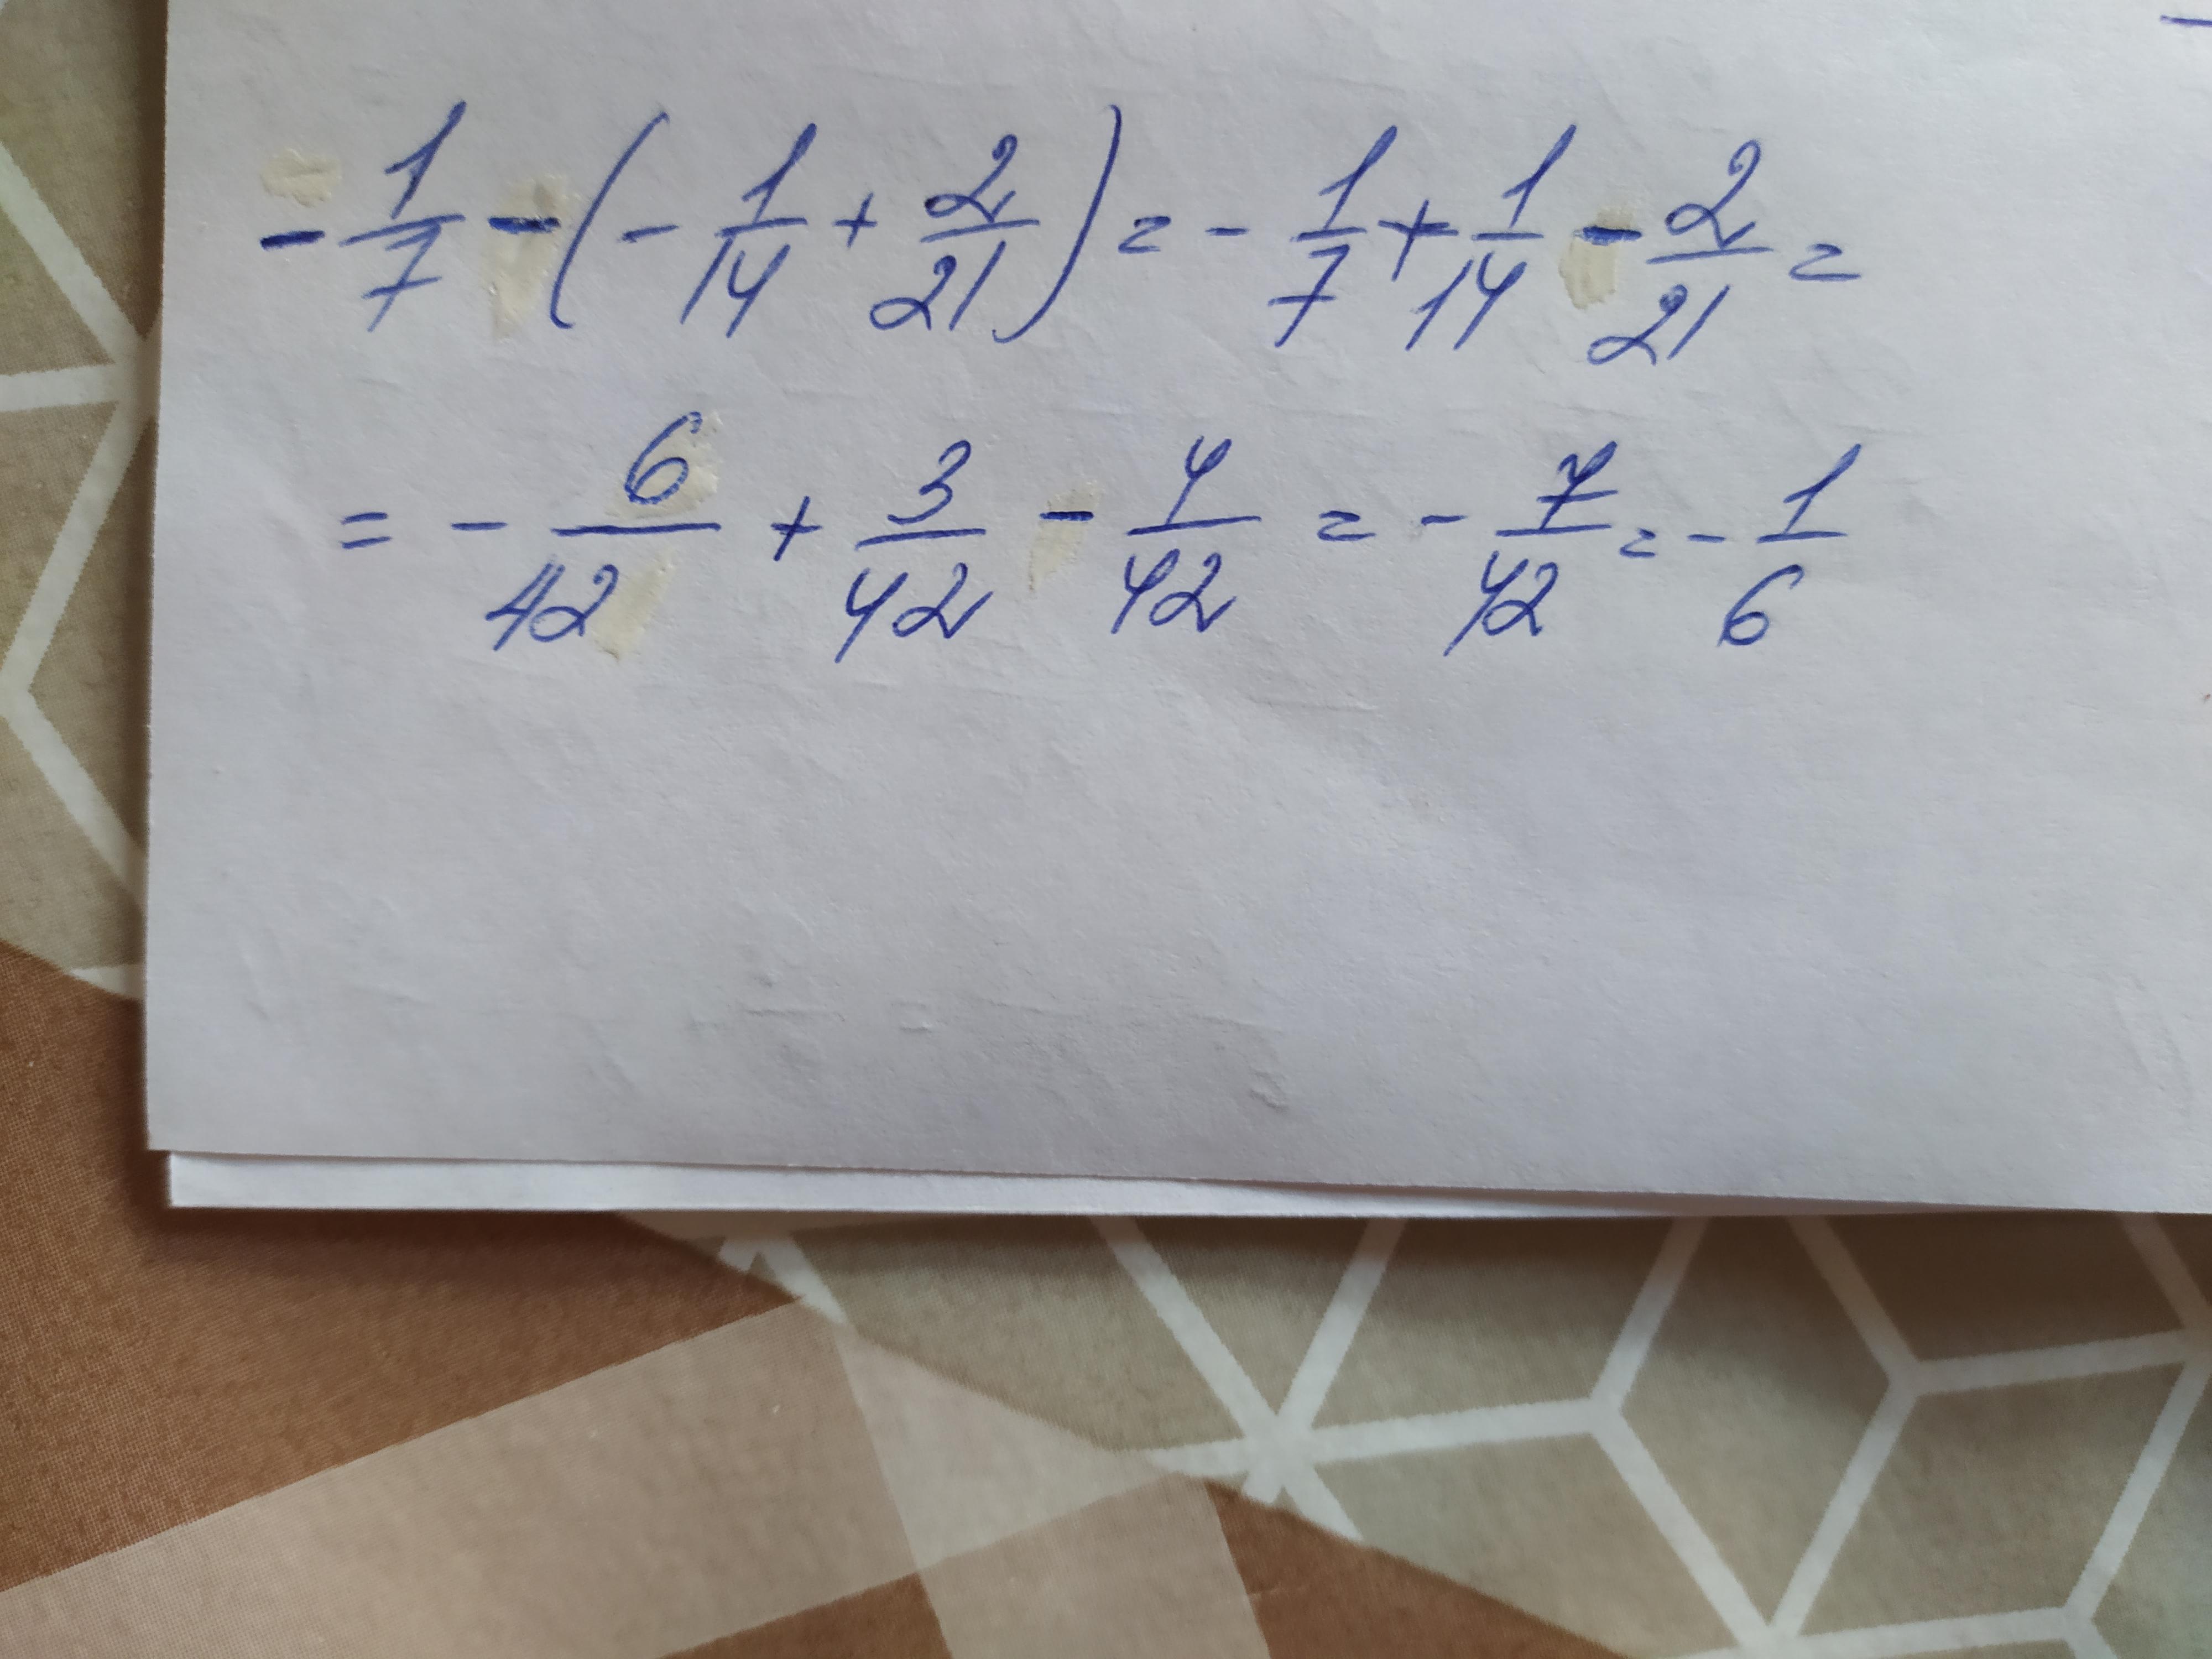 -1/7 - (-1/14 + 2/21) = -1/7 + 1/14 - 2/21 =
= -6/42 + 3/42 - 4/42 = -7/42 = -1/6